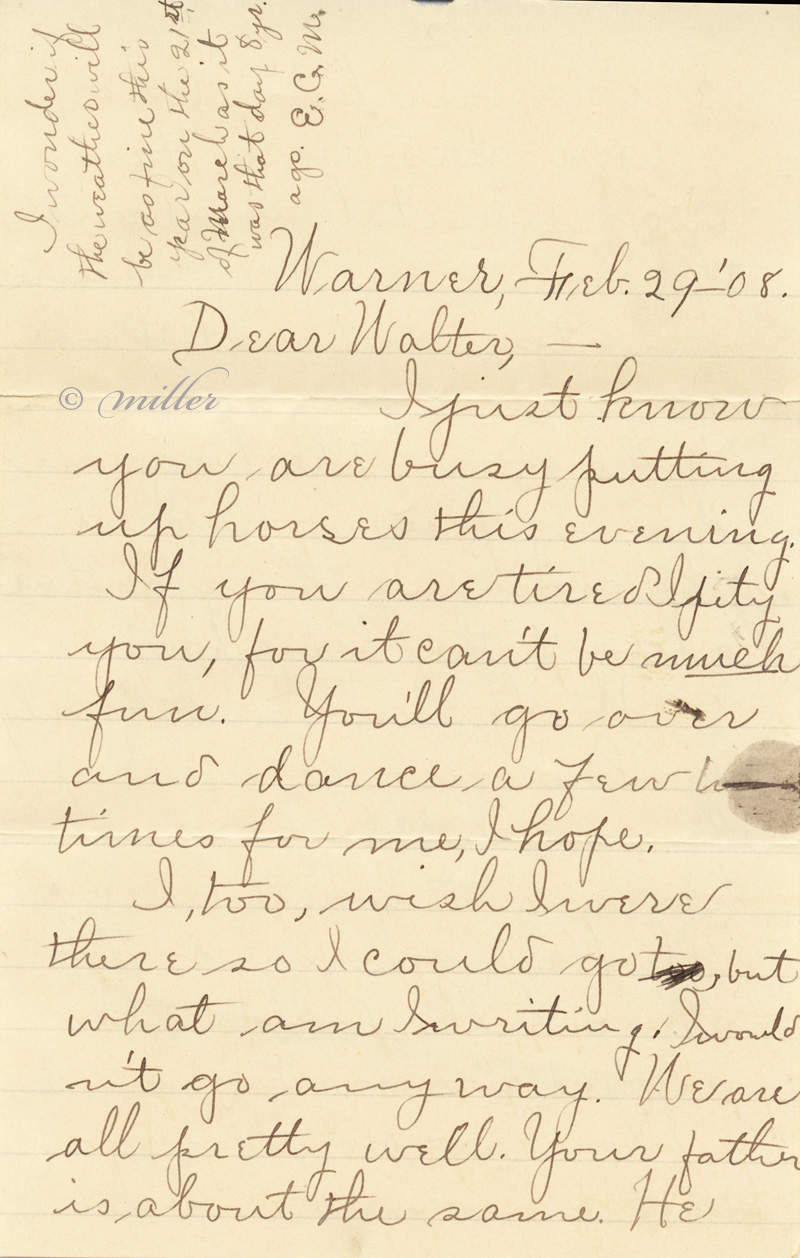 I wonder if
the weather will
be as fine this
year on the 21st
of March as it
was that day 8 yr.
ago. E. C. M.
Warner, Feb. 29-'08.
Dear Walter, —
© miller
I just know
you are busy putting
up horses this evening.
If you are tired I pity
you, for it can't be much
fun. You'll go over
and dance a few
times for me, I hope.
I, too, wish I were
there so I could go too, but
what am I writing. I would
n't go anyway. We are
all pretty well. Your father
is about the same. He